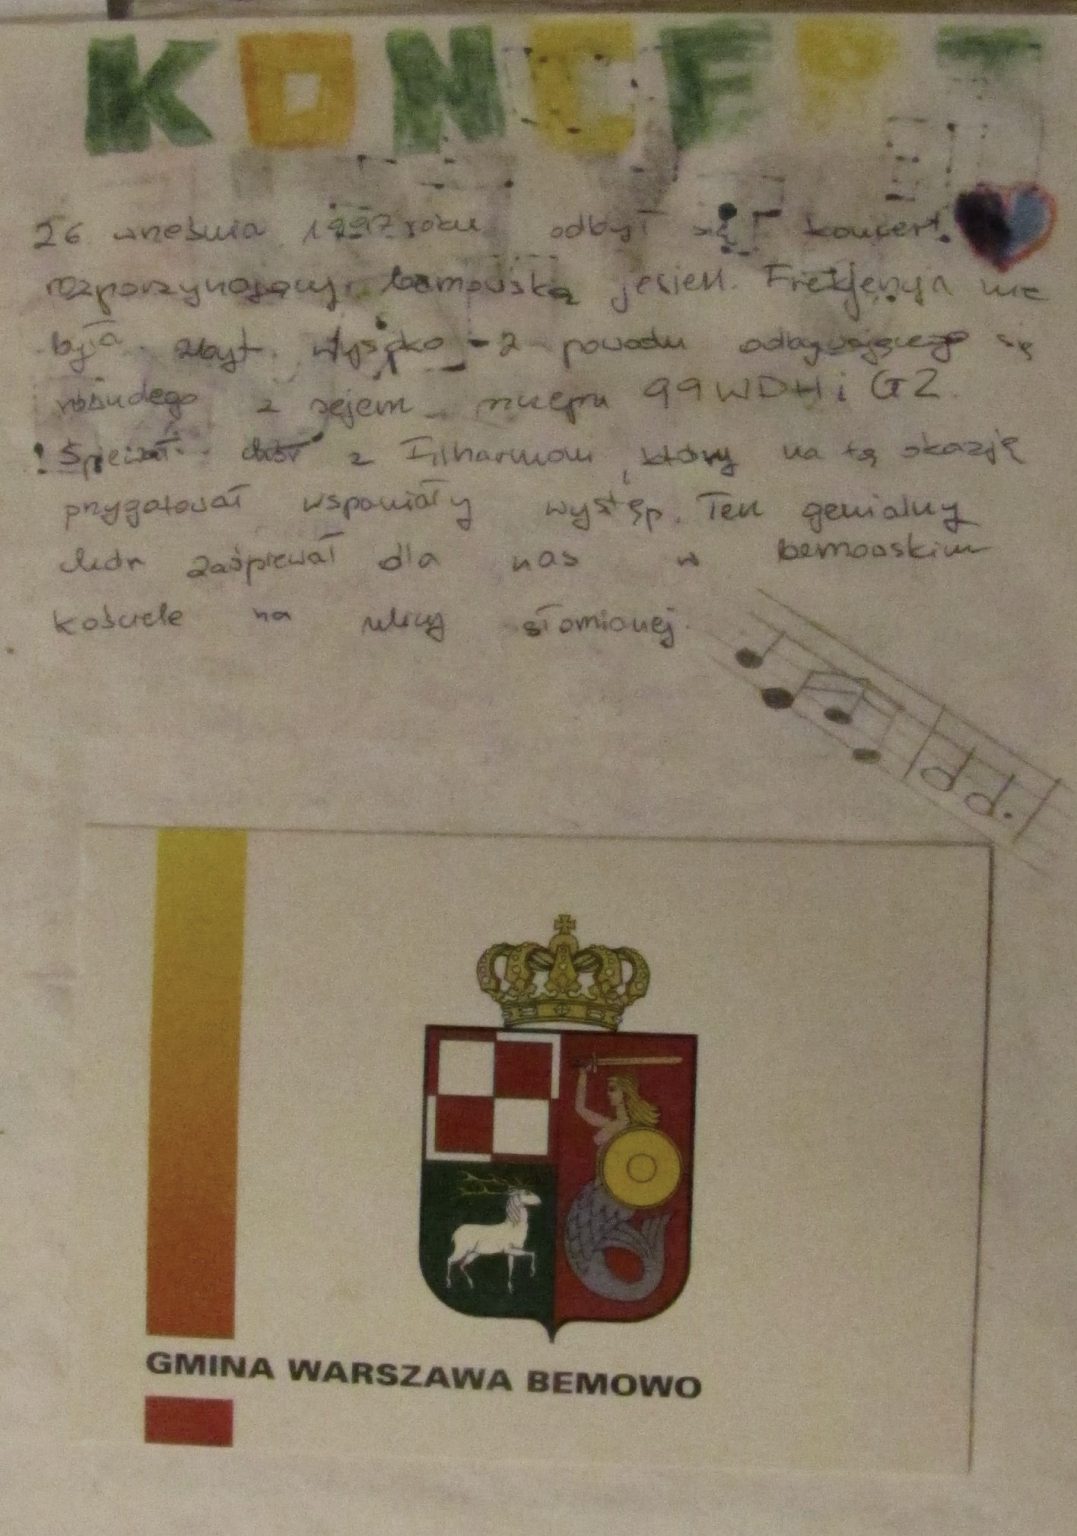 KONCERT
26 września 1997 roku odbył się koncert
rozpoczynający bemowską jesień. Frekfencja nie
była zbyt wysoka - z powodu odbywającego się
z sejem szczepu 99 WDH i GZ.
Śpiewał chór z Filharmonii, który na tą okazję
przygotował wspaniały występ. Ten genialny
chór zaśpiewał dla nas w bemowskim
kościele na ulicy słomionej.
GMINA WARSZAWA BEMOWO